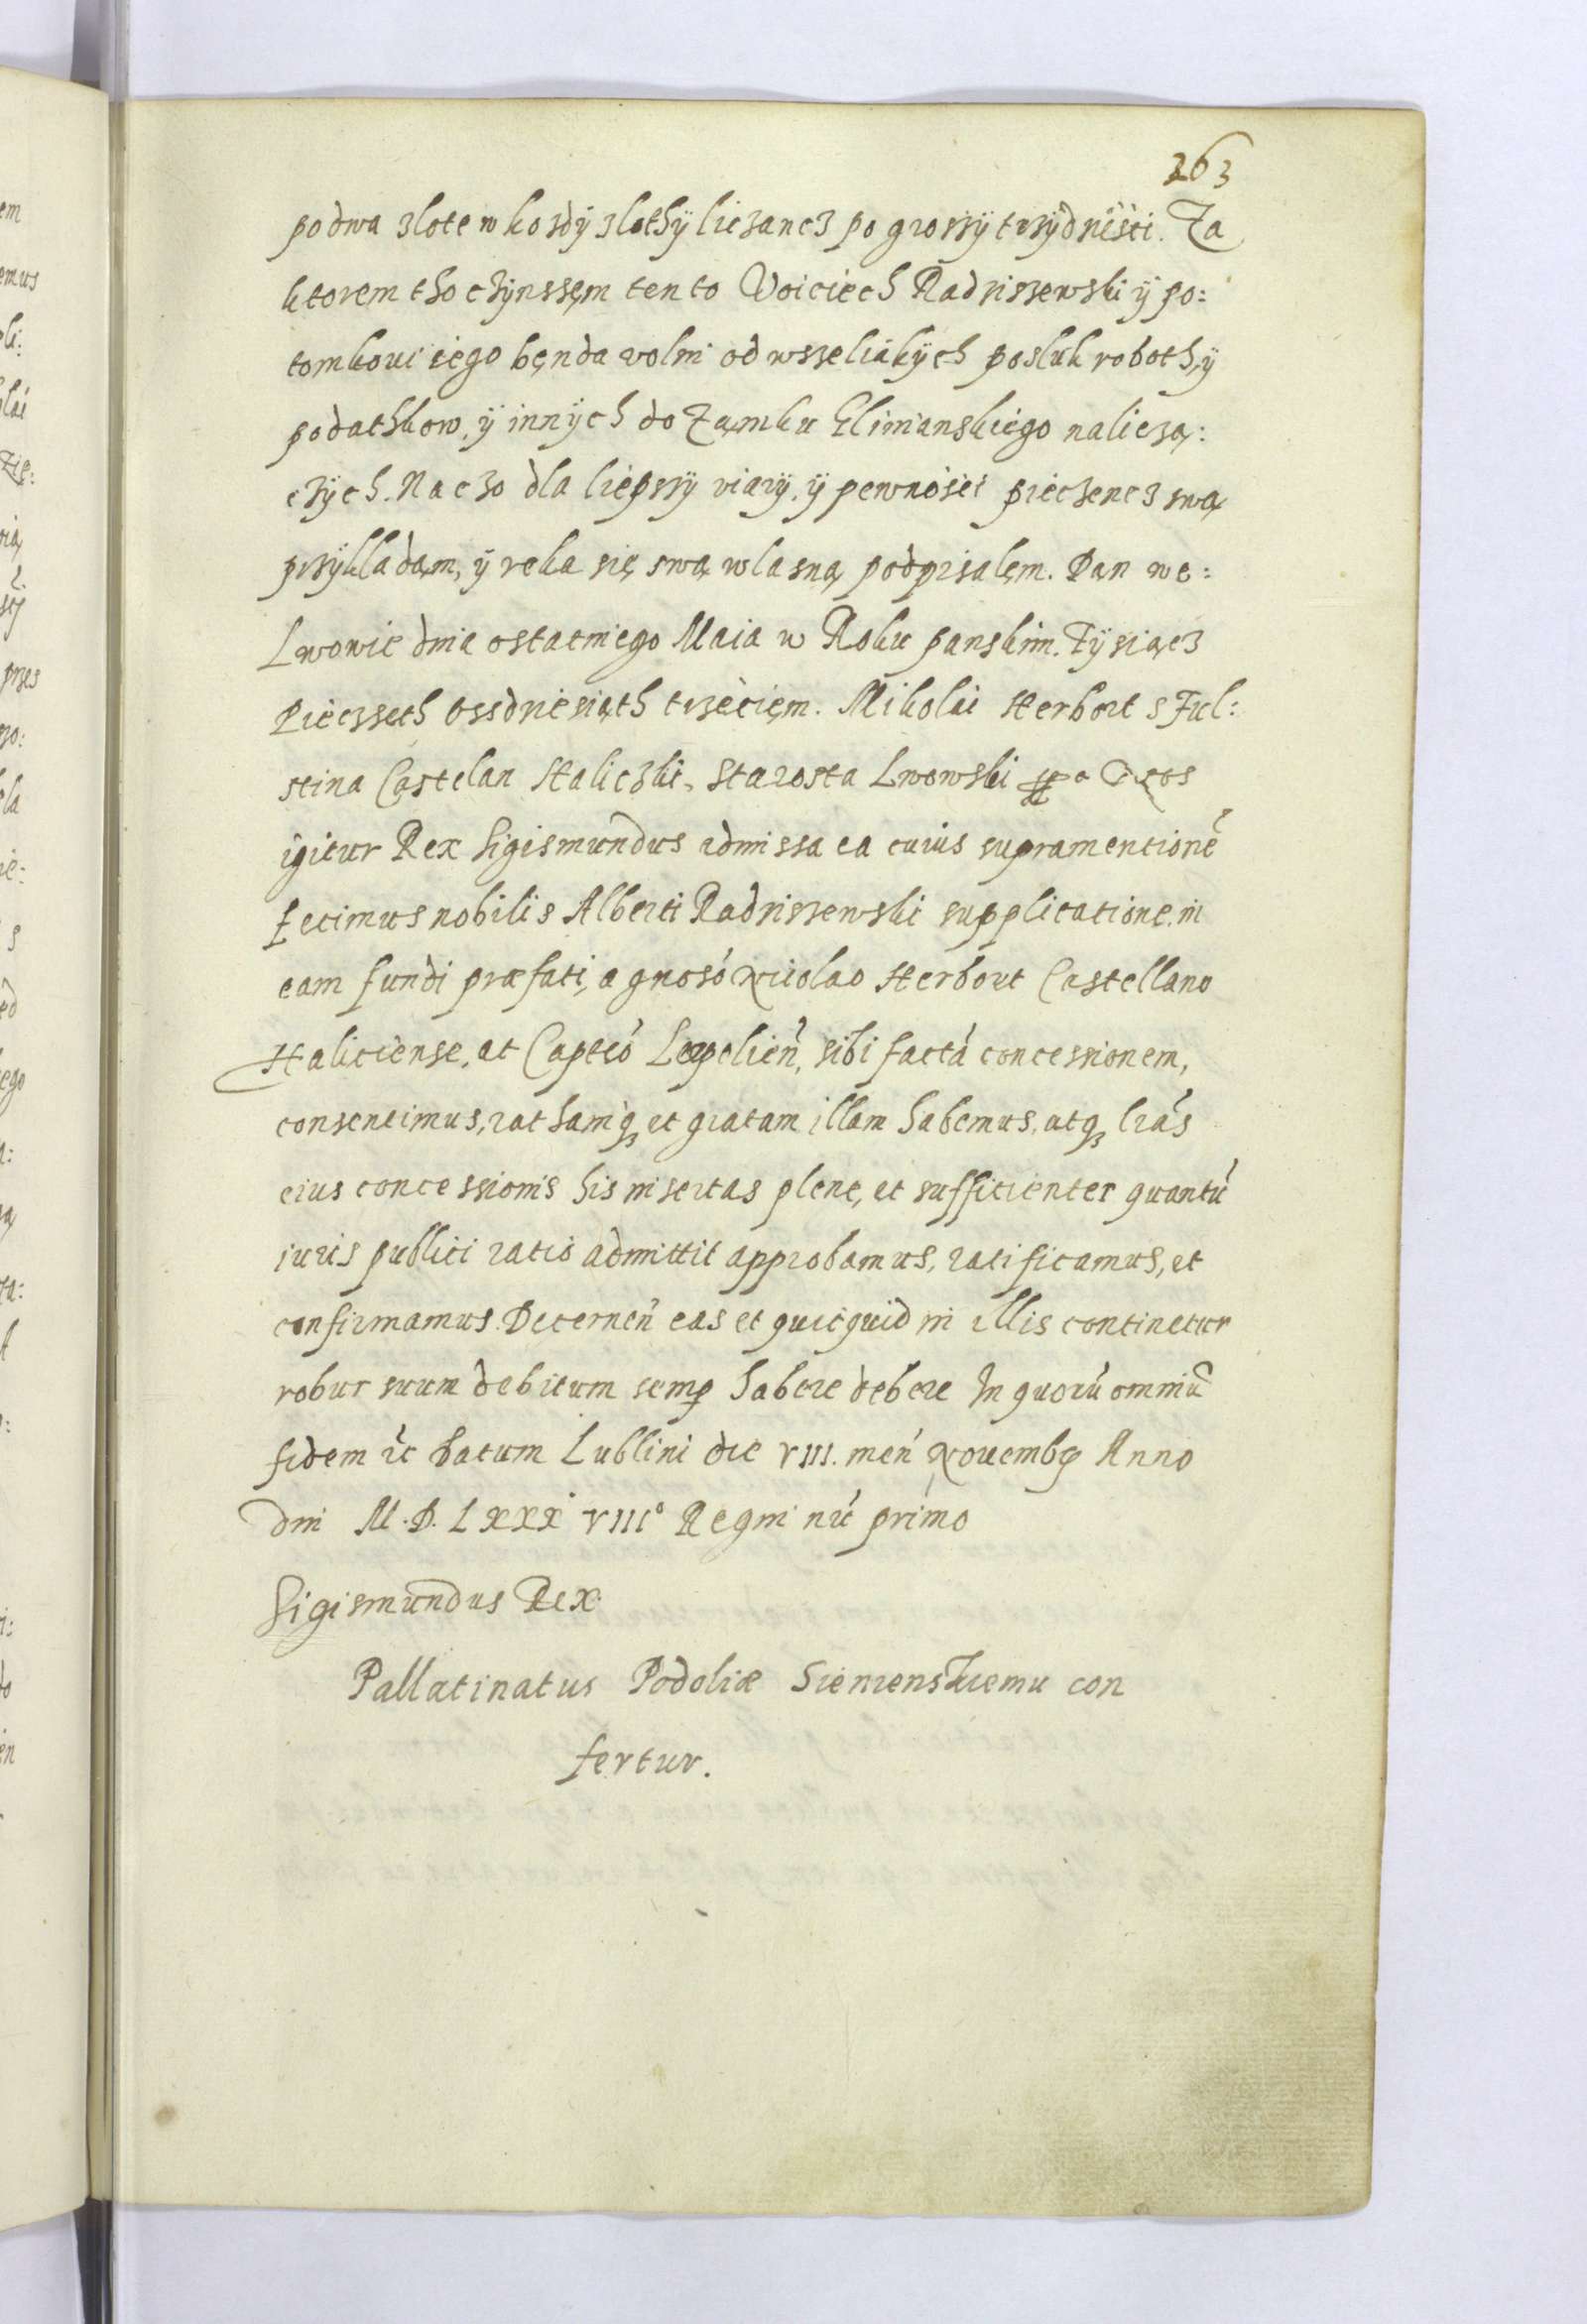 263
po dwa zlote w kozdÿ zlothÿ liczancz po grossÿ trzÿdziesci. Za
ktorem tho czÿnssęm ten to Voiciech Radzissewski ÿ po:
tomkovi iego bęnda volni od wsseliakÿch posluk roboth, ÿ
podathkow, ÿ innÿch do Zamku Glinianskiego naliezą:
czÿch. Na czo dla liepssÿ viarÿ, ÿ pewnosci pieczencz swą
przÿkladąm, ÿ reka się swą wlasną podpisalęm. Dan we:
Lwowie dnia ostatniego Maia w Roku panskim. Tÿsiącz
Piecsseth Ossdziesiąth trzeciem. Mikolai Herbort s Ful:
stina Castelan Haliczki, Starosta Lwowski Nos
igitur Rex Sigismundus admissa ea cuius supra mentionē
fecimus nobilis Alberti Radzissewski supplicatione in
eam fundi præfati, a gnoso Nicolao Herbort Castellano
Haliciense, ac Capteo Leopolien, sibi factā concessionem,
consentimus, rathamq et gratam illam habemus, atq lrās
eius concessionis his insertas plene, et sufficienter quantū
iuris publici ratio admittit approbamus, ratificamus, et
confirmamus. Decernen eas et quicquid in illis continetur
robur suum debitum semp habere debere In quorū omniū
fidem etc Datum Lublini die VIII. men Novemb Anno
dni M. D. LXXX VIIIº Regni nri primo
Sigismundus Rex
Pallatinatus Podoliæ Sienienskiemu con
fertur.